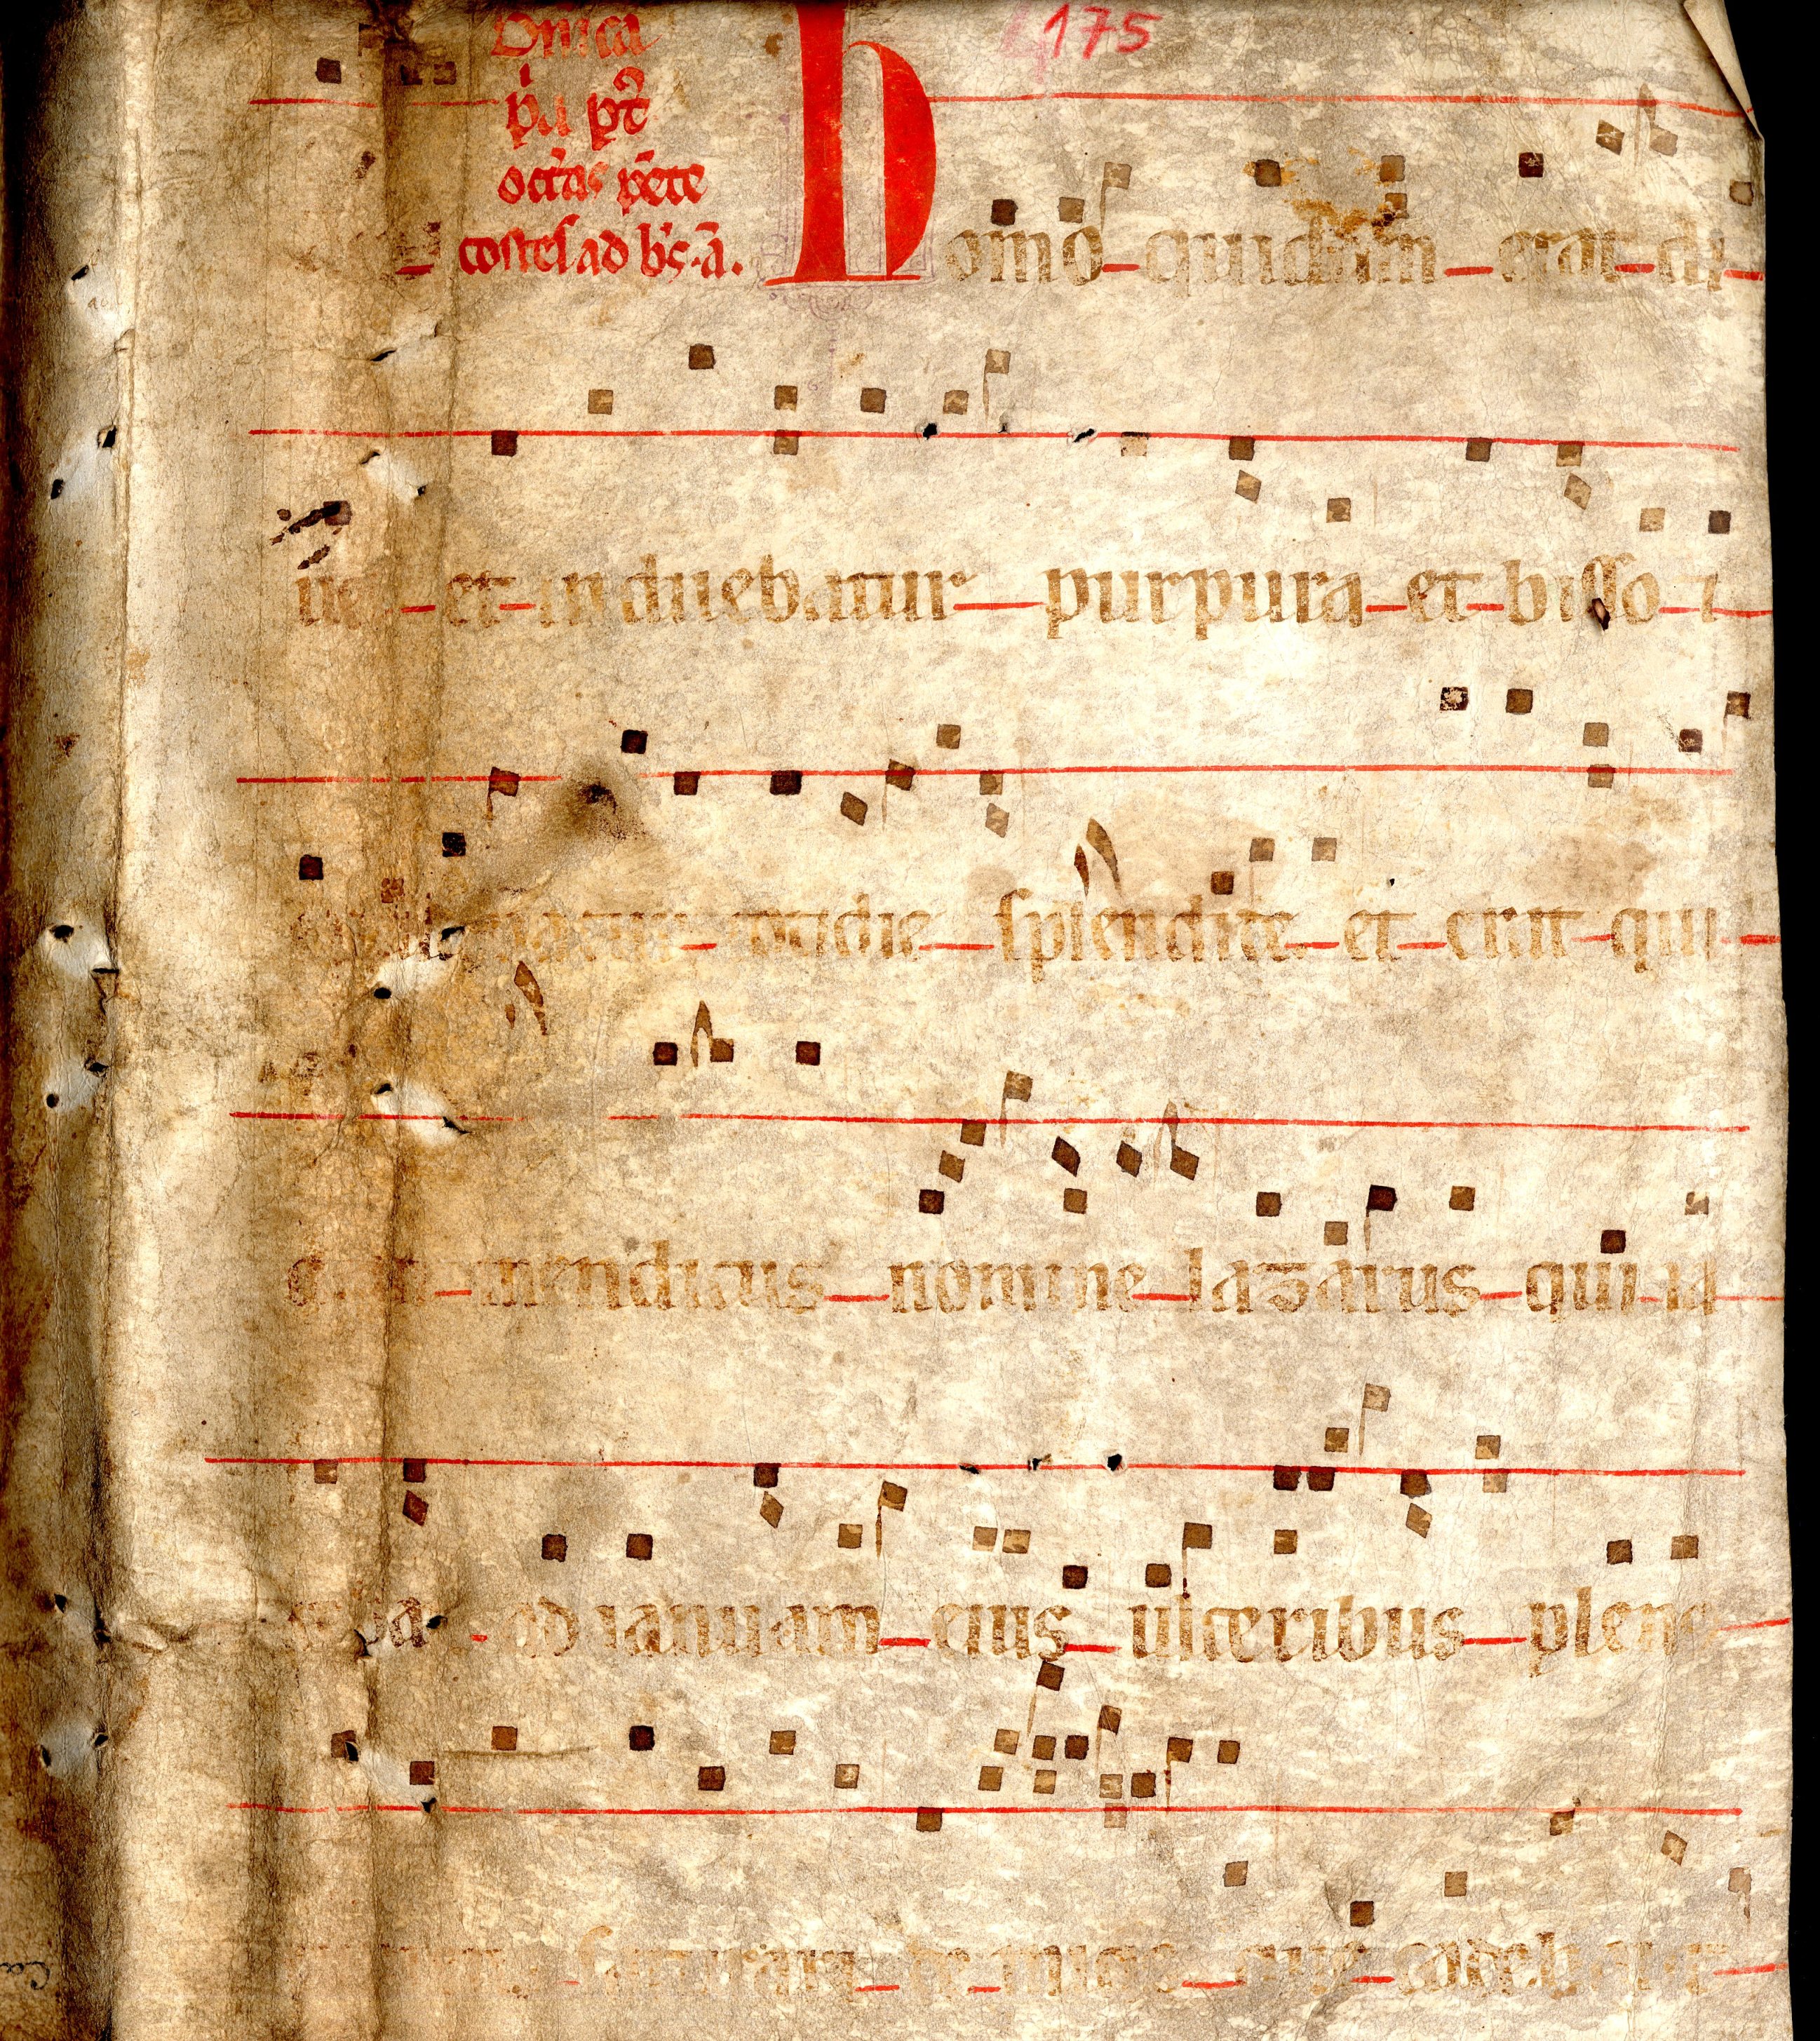 Dnica
175
pa pt
octas pete
costes ad bs. a.
Homo quidam erat di
ues et induebatur purpura et bisso 7
cotidie splendite et erat qui
mendicus nomine lazarus qui ia
ad ianuam eius ulceribus plene
saturari de micis que cadebant